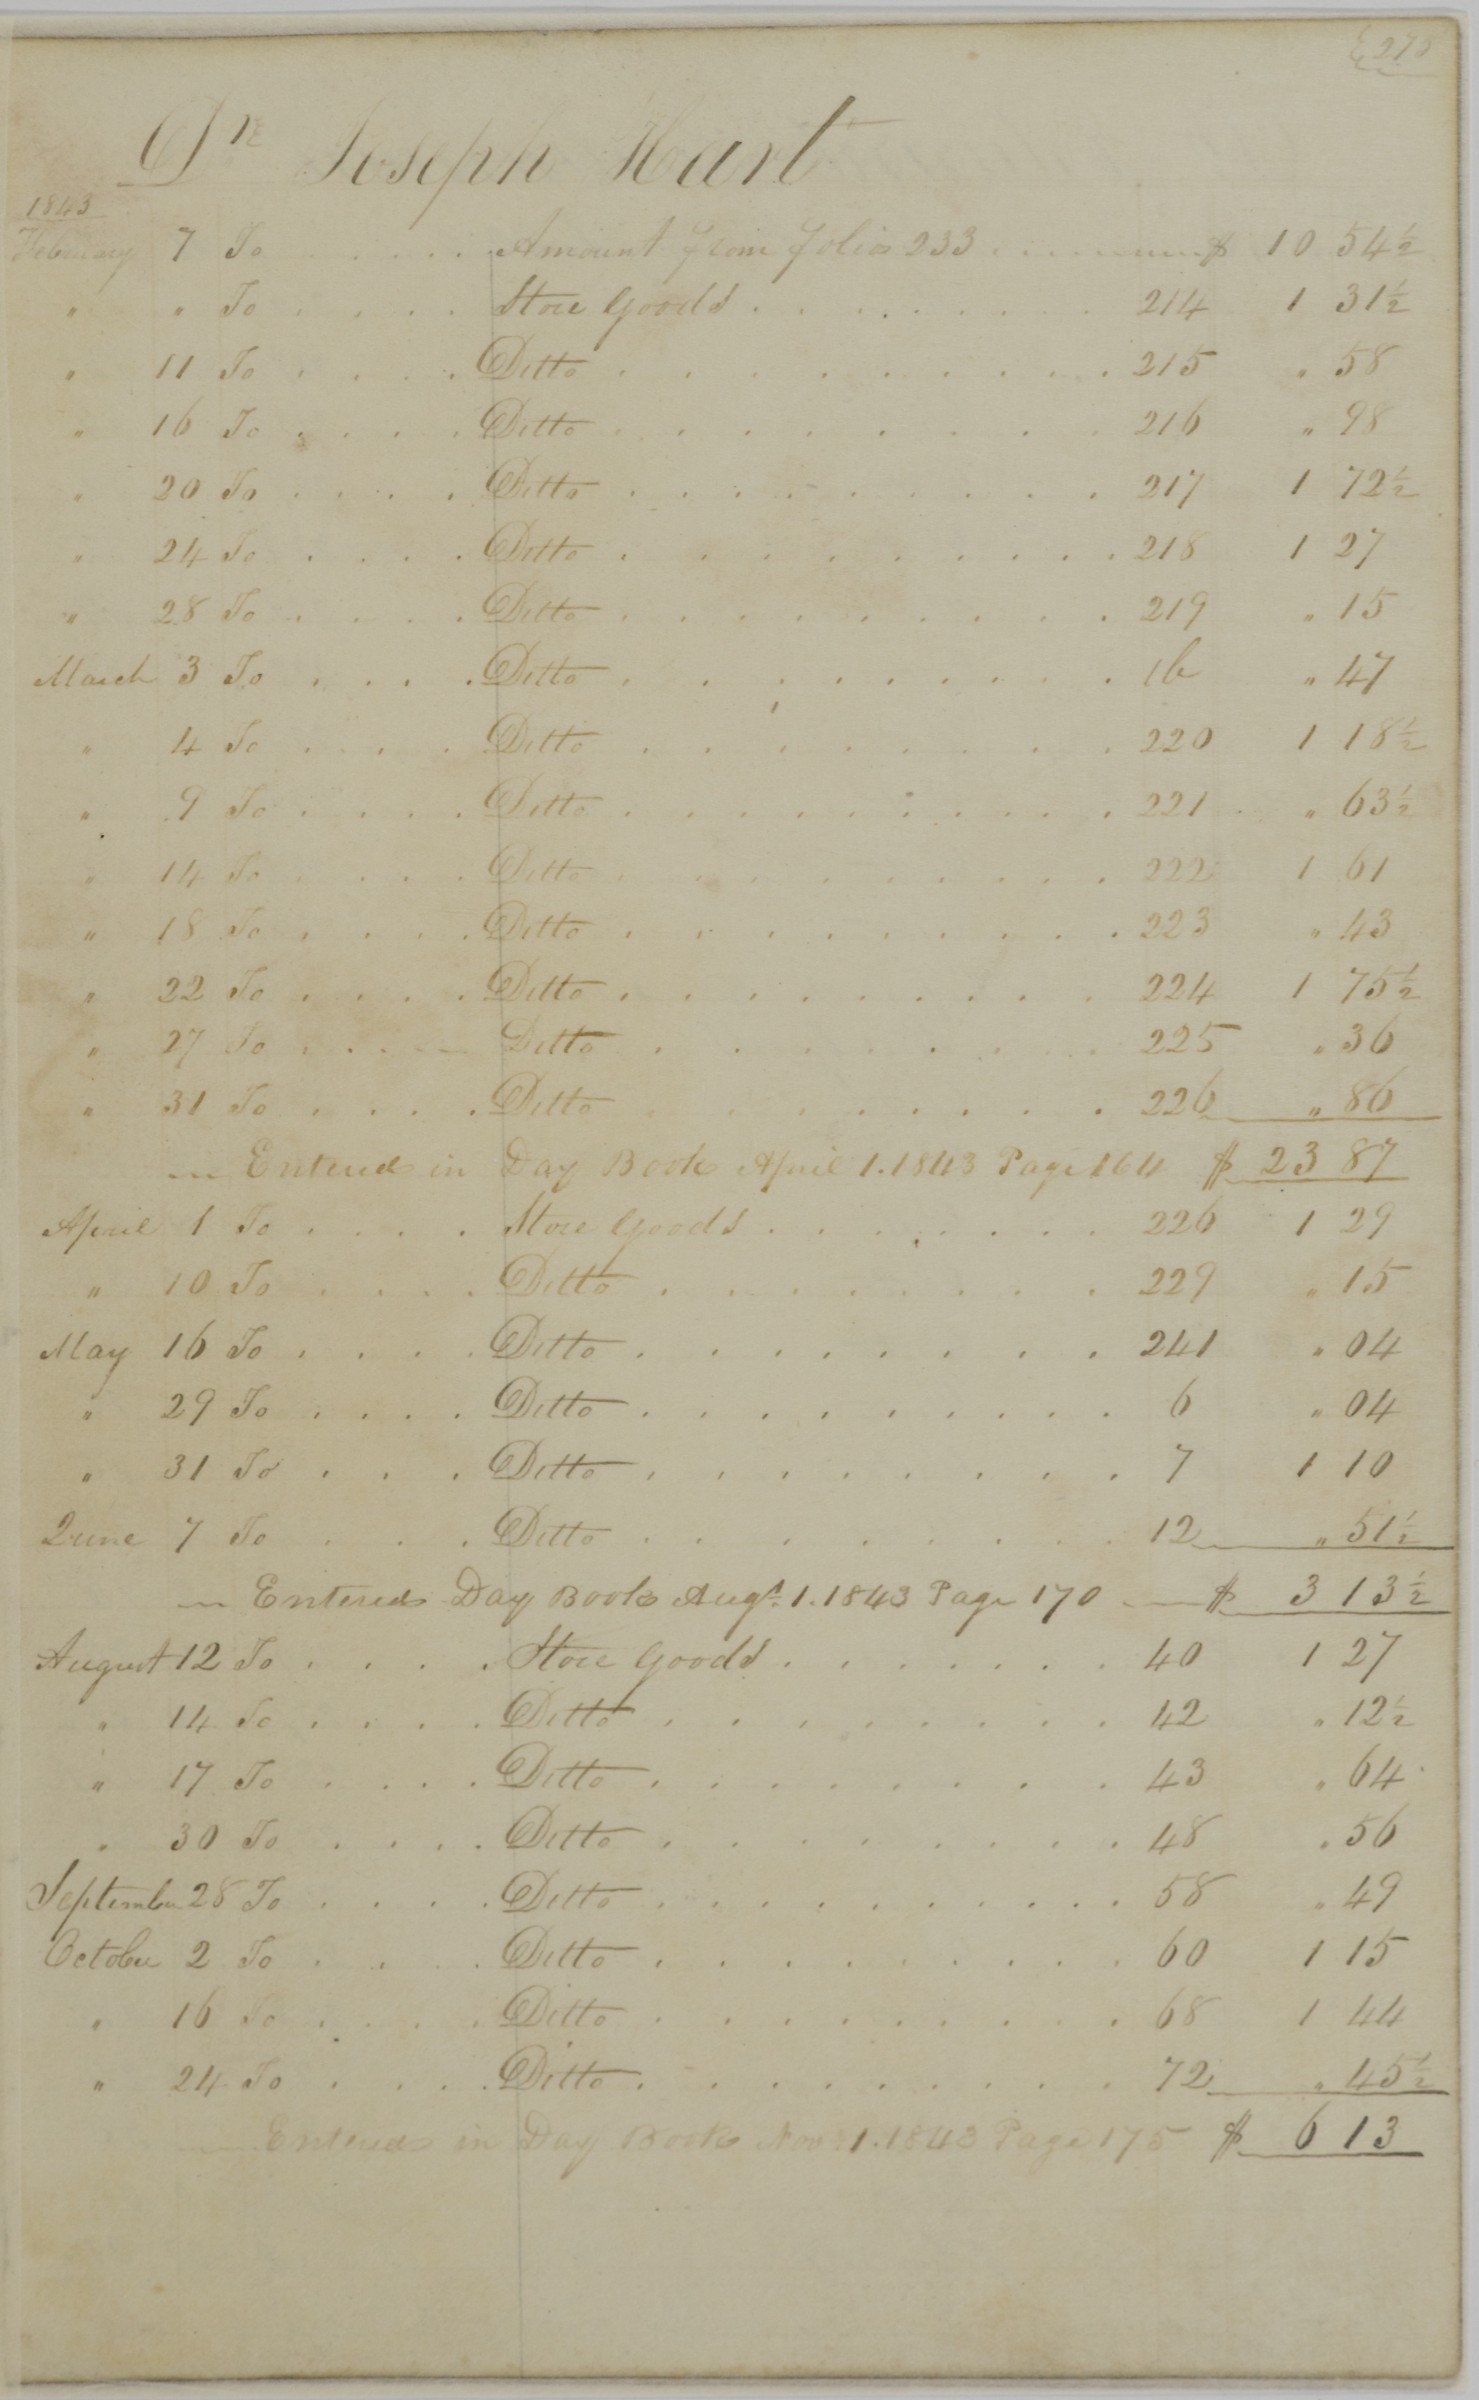 Dr Joseph Hart
1843
February 7 To . . . . . Amount from folio 233 . . . . $ 10 54½
" " To . . . . Store Goods . . . . . . . . 214 1 31½
" 11 To . . . . Ditto . . . . . . . . . 215 " 58
" 16 To . . . . Ditto . . . . . . . . 216 " 98
" 20 To . . . . Ditto . . . . . . . . 217 1 72½
" 24 To . . . . Ditto . . . . . . . . . 218 1 27
" 28 To . . . . Ditto . . . . . . . . . 219 " 15
March 3 To . . . . Ditto . . . . . . . . . Ib " 47
" 4 To . . . . Ditto . . . . . . . . . 220 1 18½
" 9 To . . . . Ditto . . . . . . . . . 221 " 63½
" 14 To . . . . Ditto . . . . . . . . . 222 1 61
" 18 To . . . . Ditto . . . . . . . . . 223 " 43
" 22 To . . . . Ditto . . . . . . . . . 224 1 75½
" 27 To . . . . Ditto . . . . . . . . 225 " 36
" 31 To . . . . Ditto . . . . . . . . 226 " 86
Entered in Day Book April 1. 1843 Page 164 $ 23 87
April 1 To . . . . Store Goods . . . . . . . 226 1 29
" 10 To . . . . Ditto . . . . . . . . 229 " 15
May 16 To . . . . Ditto . . . . . . . . 241 " 04
" 29 To . . . . Ditto . . . . . . . . . 6 " 04
" 31 To . . . Ditto . . . . . . . . 7 1 10
June 7 To . . . Ditto . . . . . . . . 12 " 51½
Entered Day Book Augt. 1. 1843 Page 170 $ 3 13½
August 12 To . . . . Store Goods . . . . . . . 40 1 27
" 14 To . . . . Ditto . . . . . . . . 42 " 12½
" 17 To . . . . Ditto . . . . . . . . 43 " 64
" 30 To . . . . Ditto . . . . . . . . . 48 " 56
September 28 To . . . . Ditto . . . . . . . . . 58 " 49
October 2 To . . . . Ditto . . . . . . . . . 60 1 15
" 16 To . . . . Ditto . . . . . . . . . 68 1 44
" 24 To . . . . Ditto . . . . . . . . . 72 " 45½
Entered in Day Book Nov. 1. 1843 Page 175 $ 6 13